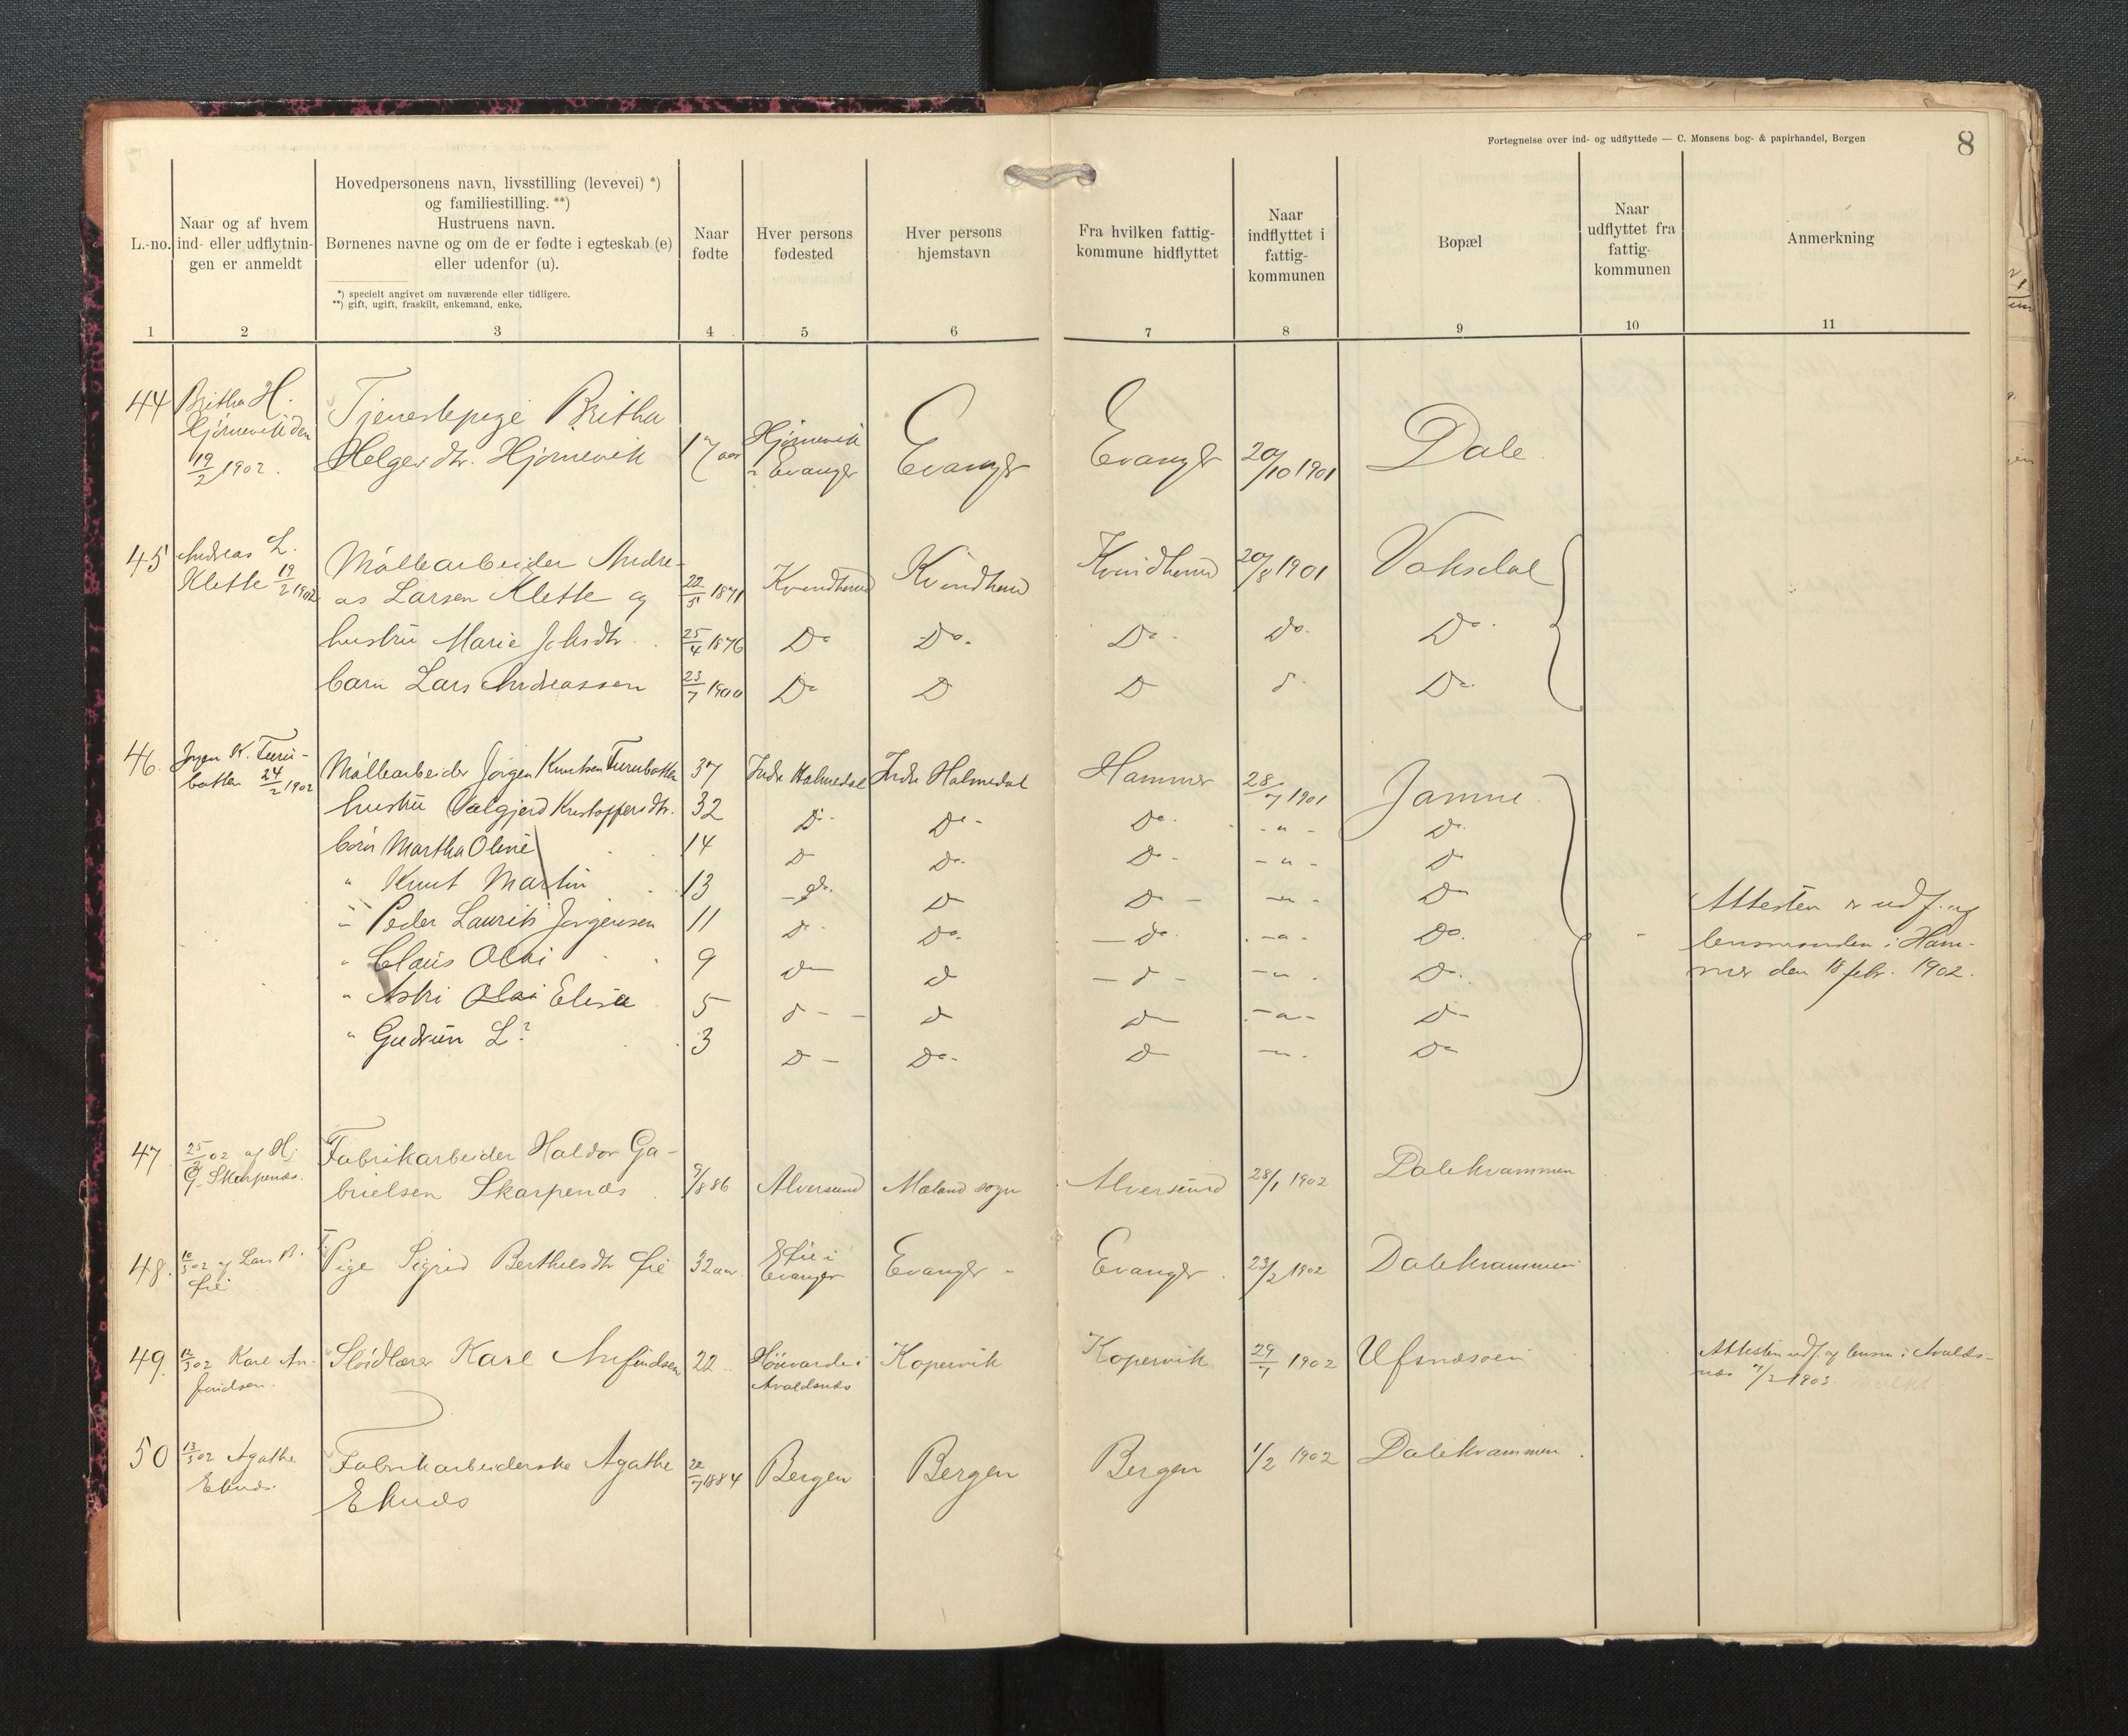 Fortegnelse over ind- og udflyttede — C. Monsens bog- & papirhandel, Bergen
8
L.-no.
Naar og af hvem
ind- eller udflytnin-
gen er anmeldt
Hovedpersonens navn, livsstilling (levevei) *)
og familiestilling. **)
Hustruens navn.
Børnenes navne og om de er fødte i egteskab (e)
eller udenfor (u).
*) specielt angivet om nuværende eller tidligere.
**) gift, ugift, fraskilt, enkemand, enke.
Naar
fødte
Hver persons
fødested
Hver persons
hjemstavn
Fra hvilken fattig-
kommune hidflyttet
Naar
indflyttet i
fattig-
kommunen
Bopæl
Naar
udflyttet fra
fattig-
kommunen
Anmerkning
1 2 3 4 5 6 7 8 9 10 11
44
Britha H.
Hjørnevik den
19/2 1902.
Tjenestepige Britha
Helgesdtr. Hjørnevik
17 aar
Hjørnevik
i Evanger
Evanger
Evanger
20/10 1901
Dale
45
Andreas L.
Klette 19/2 1902
Møllearbeider Andre-
as Larsen Klette og
22/5 1871
Kvindherred
Kvindherred
Kvindherred
20/8 1901
Vaksdal
hustru Marie Johsdtr.
25/4 1876
Do Do. Do. Do. Do.
barn Lars Andreassen
23/7 1900
Do D D d Do.
46.
Jørgen K. Turu-
botten 24/2 1902
Møllearbeider Jørgen Knutsen Turubotten
37
Indre Holmedal
Indre Holmedal
Hammer
28/7 1901
Jamne
hustru Valgjerd Kristoffersdtr.
32
Do. Do. Do. - " - Do.
børn Martha Oline
14
D Do. Do. - " - Do
" Knut Martin
13
Do. D D - - " - Do
" Peder Laurits Jørgensen
11
Do. Do. Do. - " - Do.
" Claus Olai
9
Do d d - - " - Do.
" Astri Olai Elisa
5
d - - d D - " - D
" Gudrun L?
3
D - Do. D - " - Do
Attesten er udf. af
lensmanden i Ham-
mer den 18 febr. 1902.
47
25/2 02 af H.
G. Skarpenæs.
Fabrikarbeider Haldor Ga-
brielsen Skarpenæs
9/8 86
Alversund
Mæland sogn
Alversund
28/1 1902
Dalekvammen
48.
10/3 02 af Lars B.
Fie
Pige Sigrid Berthelsdtr Fie
32 aar
Fie i
Evanger
Evanger
Evanger
23/2 1902
Dalekvammen
49.
12/3 02 Karl An-
findsen.
Sløidlærer Karl Anfindsen
22
Hövarde i
Avaldsnæs
Kopervik
Kopervik
29/7 1902
Ufsnæsøen
Attesten udf. af lensm. i Avalds-
næs 7/2 1903.
50
13/3 02 Agathe
Eknæs.
Fabrikarbeiderske Agathe
Eknæs
22/7 1884
Bergen
Bergen
Bergen
1/2 1902
Dalekvammen.